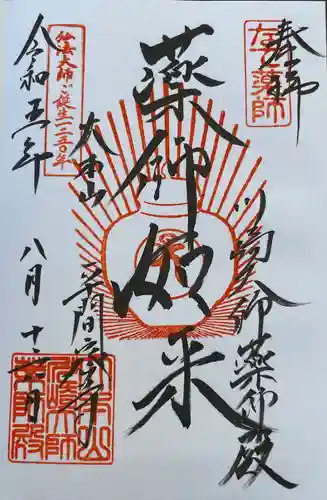 奉拝
なで薬師
川崎大師薬師殿
薬師如来
大本山
平間寺
弘法大師ご誕生一二五〇年
令和五年
八月十三日